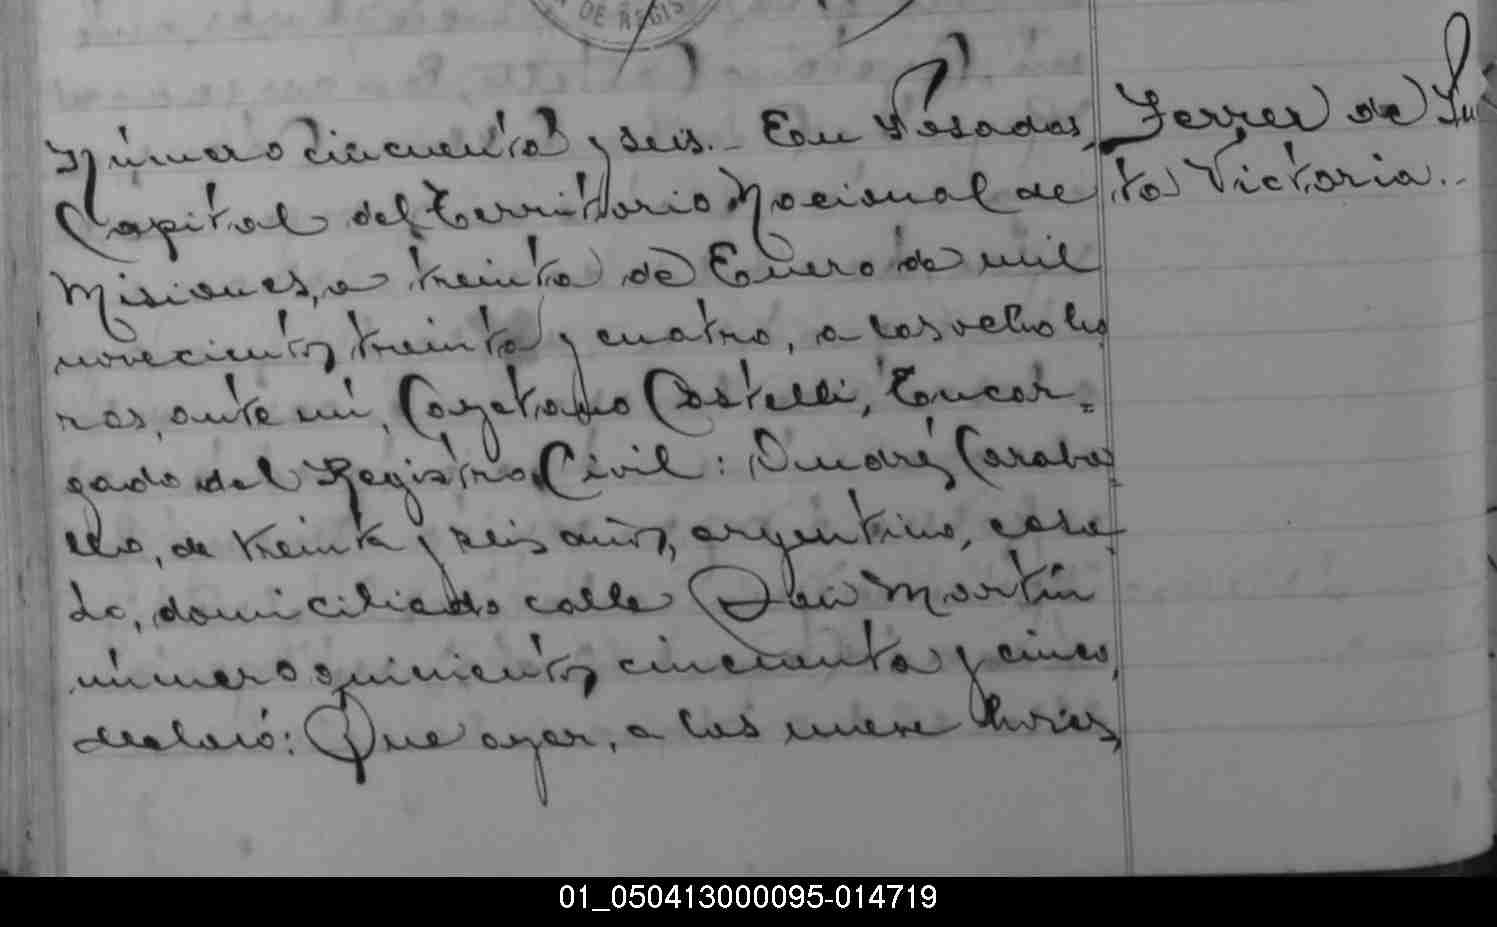 DE REGIS
Número cincuenta y seis.- En Posadas,
Capital del Territorio Nacional de
Misiones, a treinta de Enero de mil
novecientos treinta y cuatro, a las ocho ho
ras, ante mí, Cayetano Castelli, Encar=
gado del Registro Civil: Andrés Caraba=
llo, de treinta y seis años, argentino, casa
do, domiciliado calle San Martín
número quinientos cincuenta y cinco,
declaró: Que ayer, a las nueve horas,
Ferrer de
ta Victoria.-
01_050413000095-014719